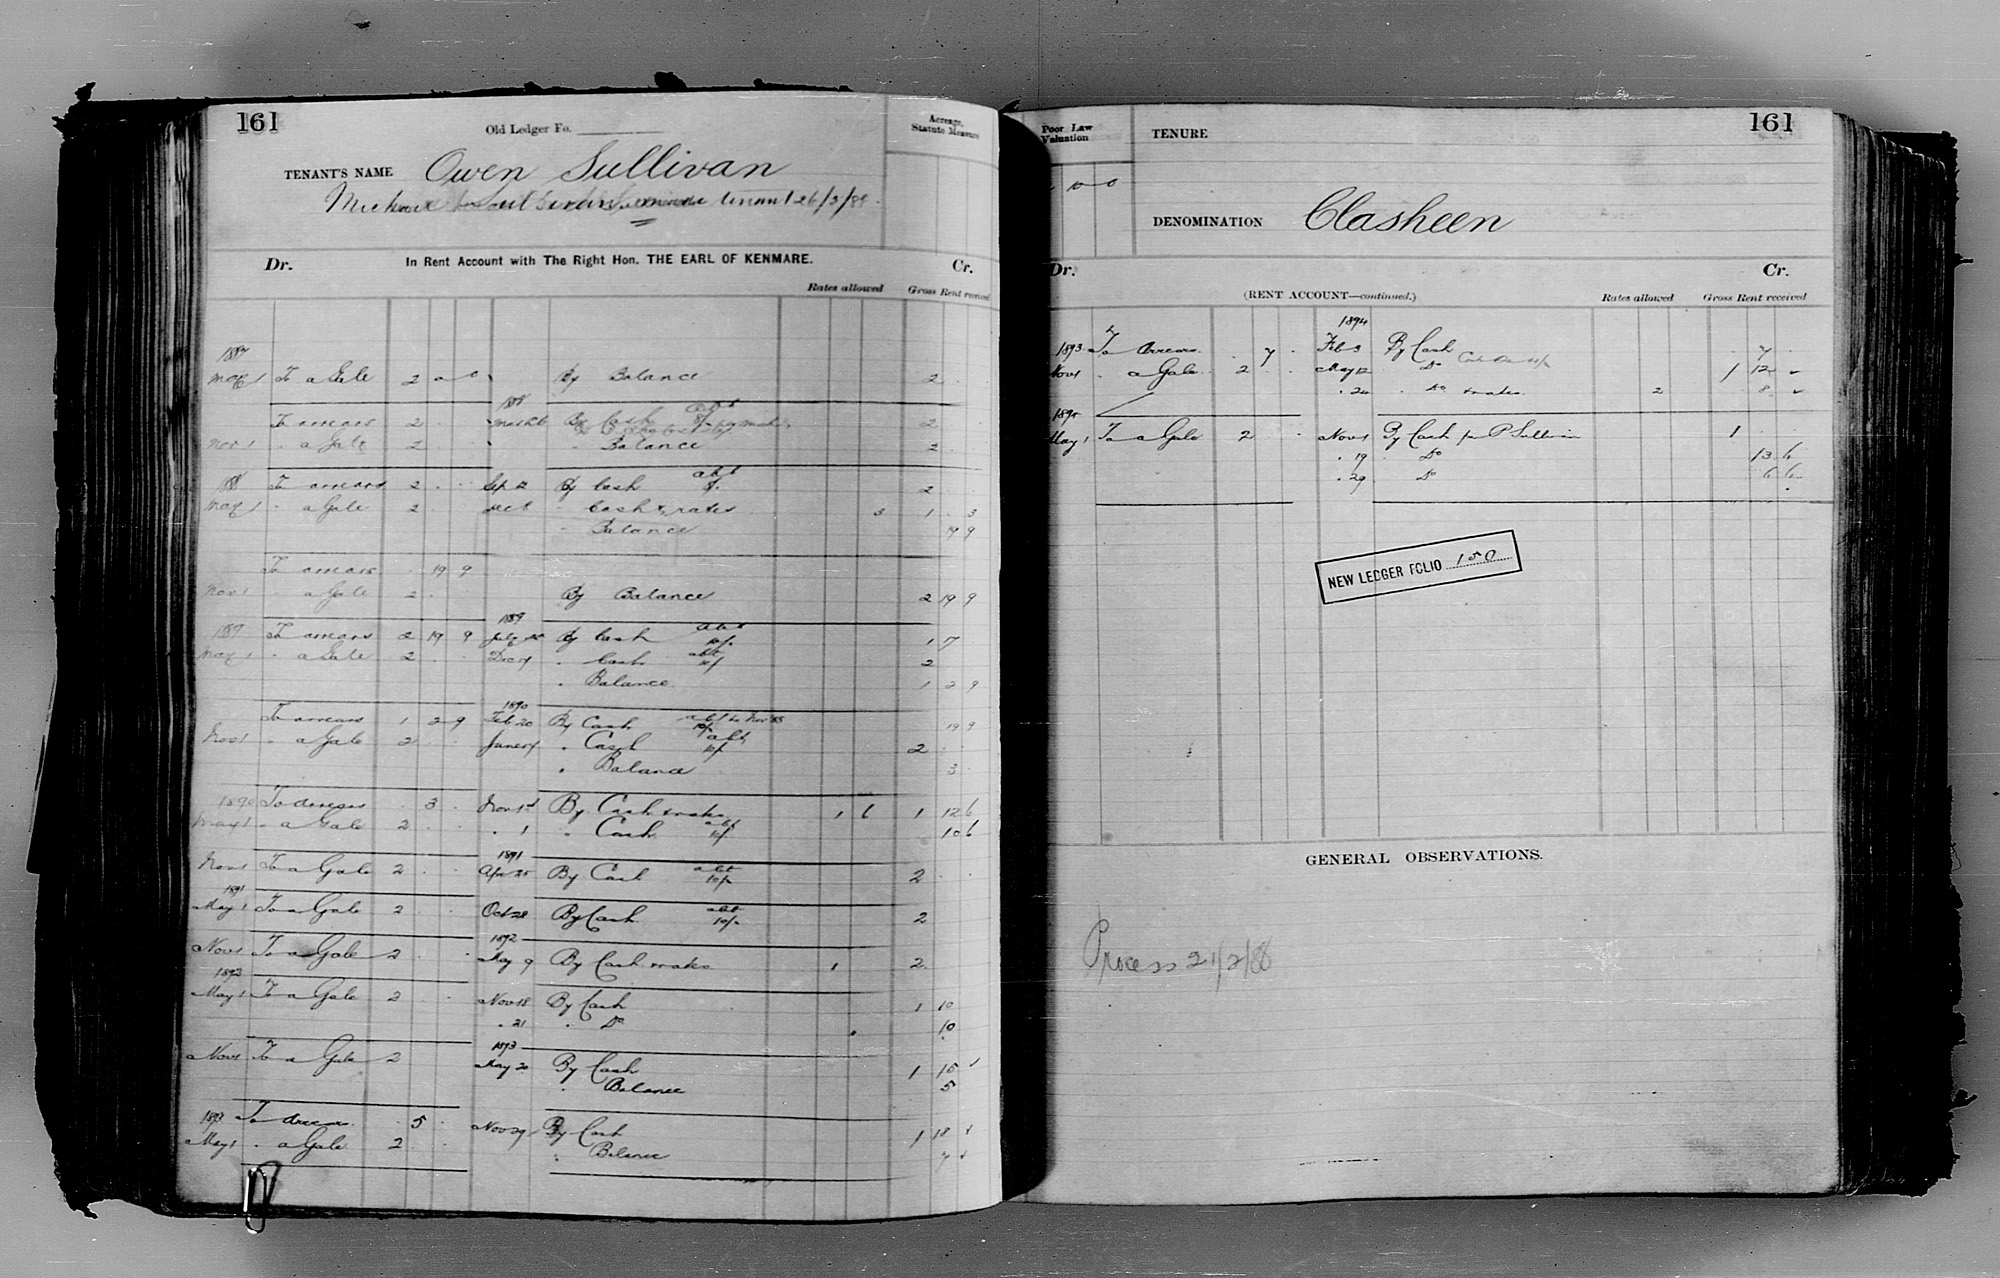 161
Old Ledger Fo.
Acreage, Statute Measure
TENANT'S NAME Owen Sullivan
tenant 26/3/88
In Rent Account with The Right Hon. THE EARL OF KENMARE.
Dr. Cr.
Rates allowed Gross Rent received
1887
May 1 To a Gale 2 0 0 By Balance 2 . .
1888
To arrears 2 . . March 6 By Cash abt 2 . .
Nov 1 " a Gale 2 . . Balance 2 . .
88 To arrears 2 . . Sep 12 By Cash abt 2 . .
May 1 " a Gale 2 . . Oct Cash & rates 3 1 . 3
" Balance 19 9
To arrears . 19 9
Nov 1 " a Gale 2 . . By Balance 2 19 9
1889
1889 To arrears 2 19 9 July By Cash abt 10/- 1 17
May 1 " a Gale 2 . . Dec " Cash abt 10/- 2
" Balance 1 2 9
1890
To arrears 1 2 9 Feb 20 By Cash abt to Nov 88 10/- 19 9
Nov 1 " a Gale 2 . . June " Cash abt 10/- 2 . .
" Balance 3 .
1890 To arrears . 3 . Nov 1st By Cash & rates 1 6 1 12 6
May 1 " a Gale 2 . . " 1 " Cash abt 10/- 10 6
1891
Nov 1 To a Gale 2 . . Apr 25 By Cash abt 10/- 2 . .
1891
May 1 To a Gale 2 . . Oct 28 By Cash abt 10/- 2
1892
Nov 1 To a Gale 2 . . May 9 By Cash & rates 1 2 .
1892
May 1 To a Gale 2 . . Nov 18 By Cash 1 10
" 21 " Do 10
1893
Nov 1 To a Gale 2 May 20 By Cash 1 15
" Balance 5
1893 To arrears . 5 . Nov 29 By Cash 1 18
May 1 " a Gale 2 " Balance 7
161
Poor Law Valuation
TENURE
10 0
DENOMINATION Clasheen
Dr. Cr.
(RENT ACCOUNT—continued.) Rates allowed Gross Rent received
1894
1893 To Arrears . 7 . Feb 3 By Cash . 7 .
Nov 1 " a Gale 2 . May 12 " Do 1 12
" 24 " Do & rates 2 8
1894
May 1 To a Gale 2 . . Nov 1 By Cash per P Sullivan 1 .
" 19 " Do 13 6
" 29 " Do 6 6
NEW LEDGER FOLIO 150
GENERAL OBSERVATIONS.
Process 21/2/88